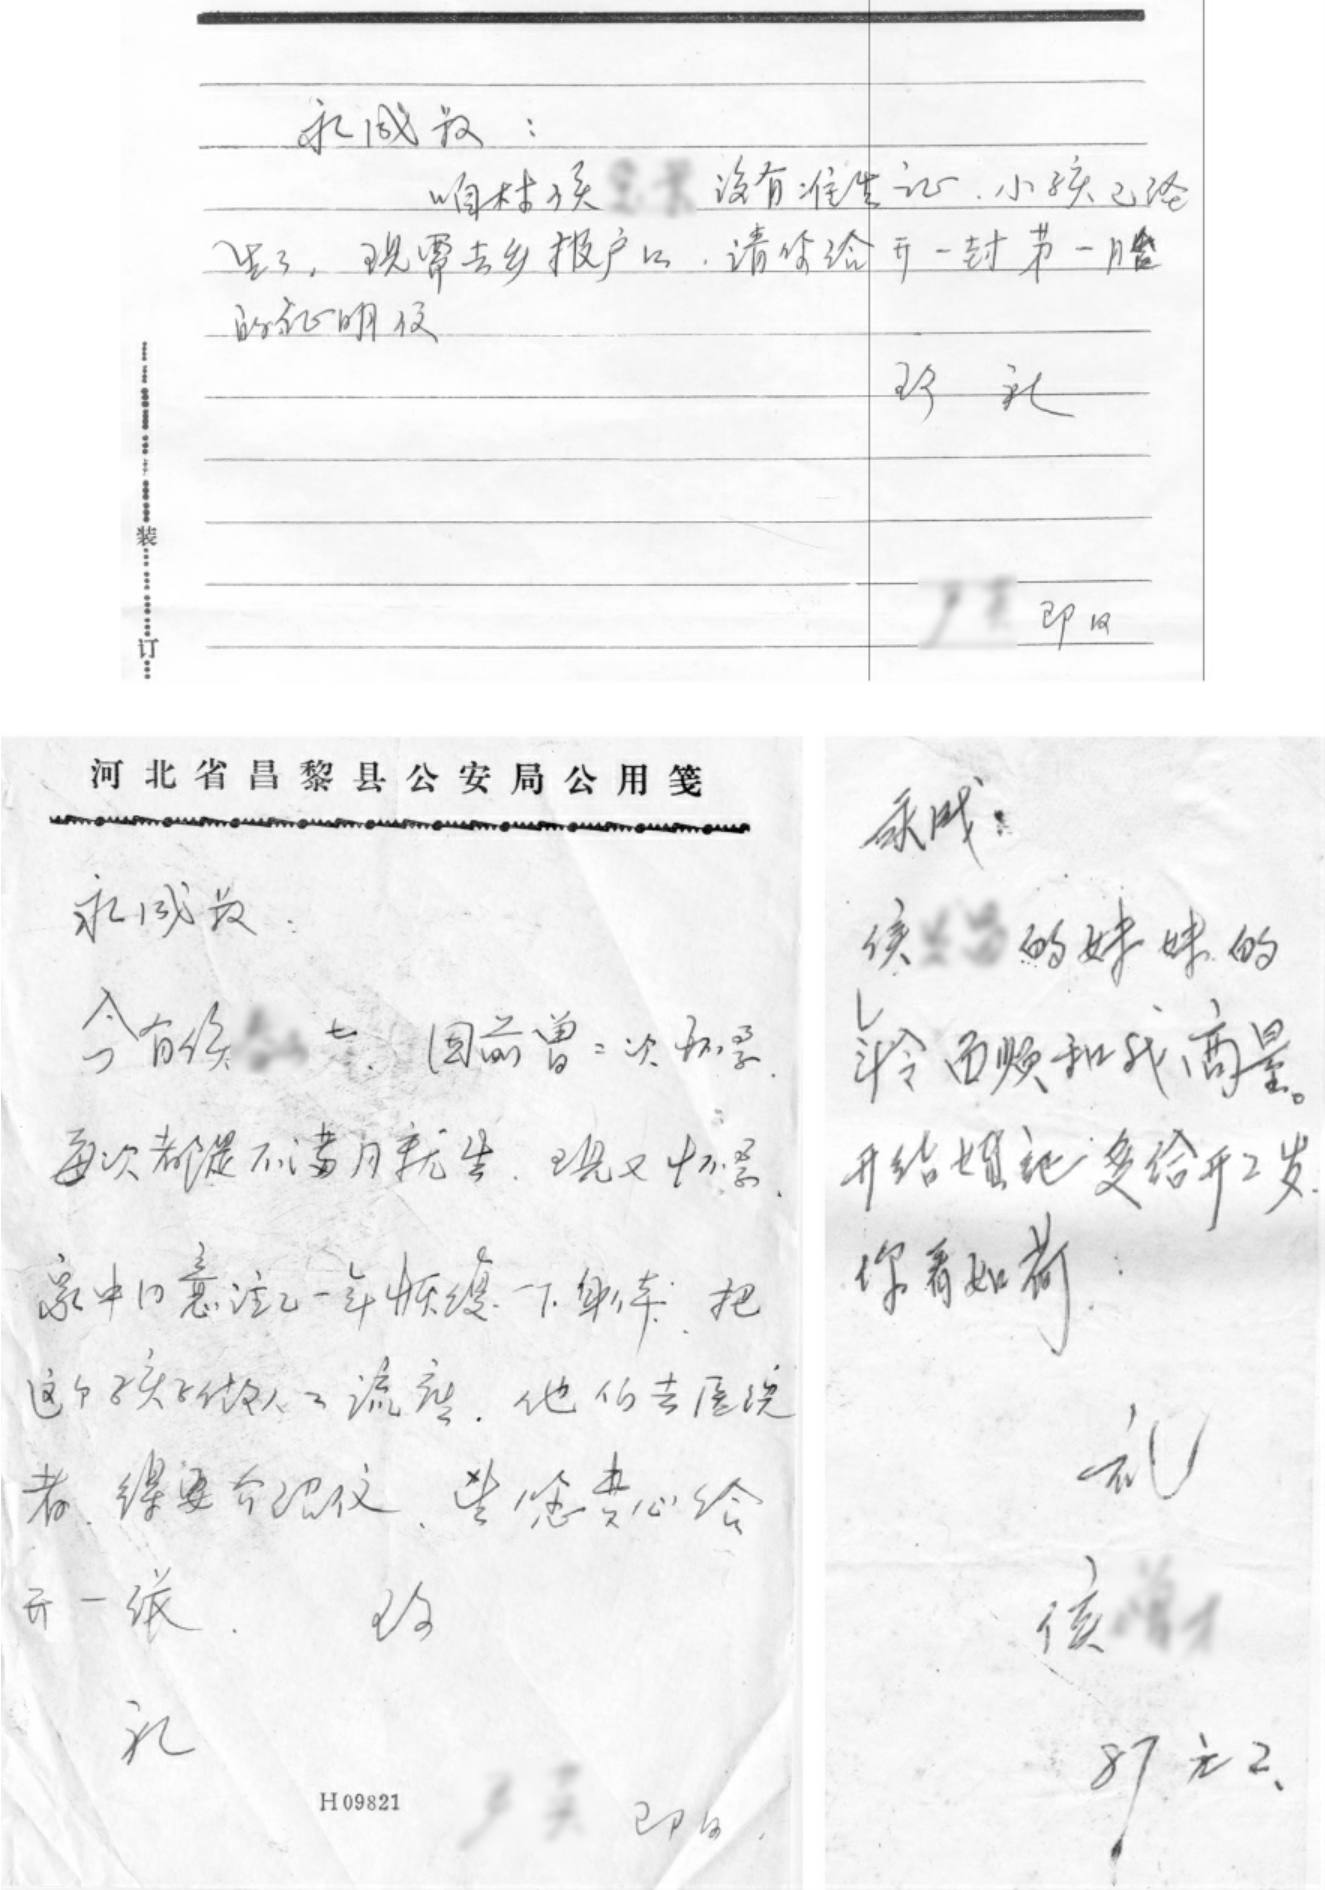 永成叔：
咱村侯 没有准生证．小孩已经
生了，现需去乡报户口．请你给开一封第一胎
的证明仪
致 礼
即日
装
订
河北省昌黎县公安局公用笺
永成叔：
今有侯 七．因前曾二次怀孕．
每次都是不满月就生．现又怀孕．
家中同意 一年恢复一下身体．把
这个孩子做人工流产．他们去医院
者．得要介绍仪．望您费心给
开一张． 致
礼
H09821
即日．
永成：
侯 的妹妹的
年令西顺和我商量。
开结婚证 给开22岁．
你看如荷：
礼
侯
87元2、